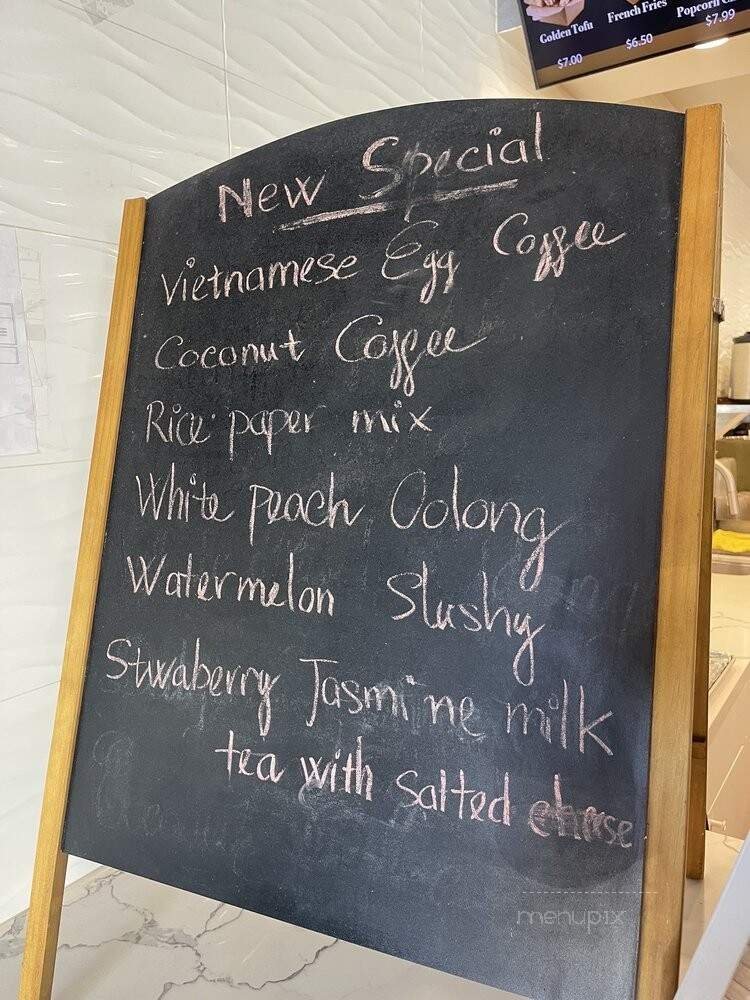 Golden Tofu
$7.00
French Fries
$6.50
Popcorn
$7.99
New Special
Vietnamese Egg Coffee
Coconut Coffee
Rice paper mix
White peach Oolong
Watermelon Slushy
Stwaberry Jasmine milk
tea with salted cheese
menupix